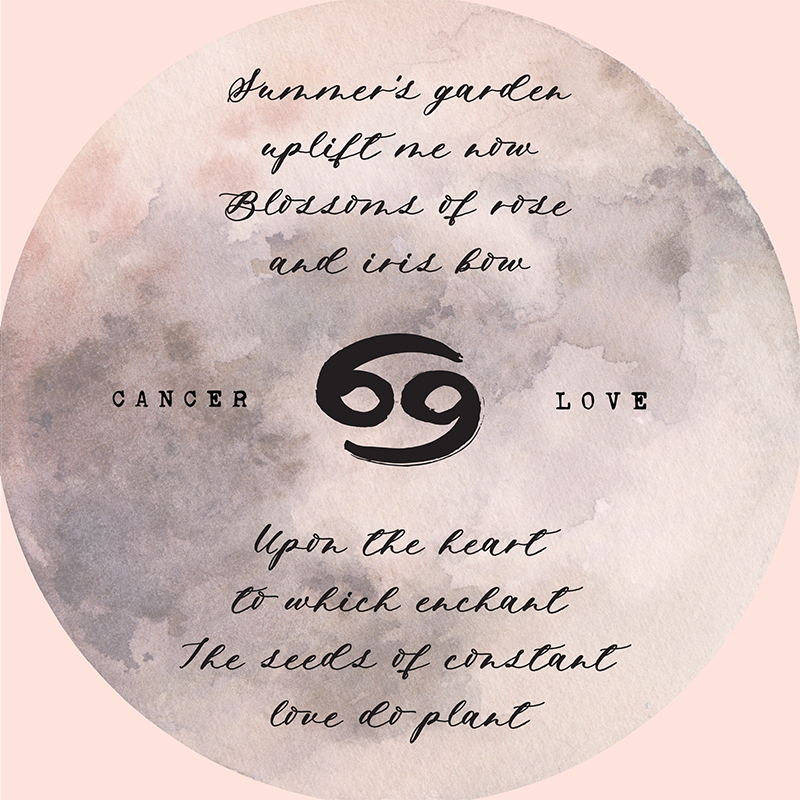 Summer's garden
uplift me now
Blossoms of rose
and iris bow
CANCER LOVE
Upon the heart
to which enchant
The seeds of constant
love do plant